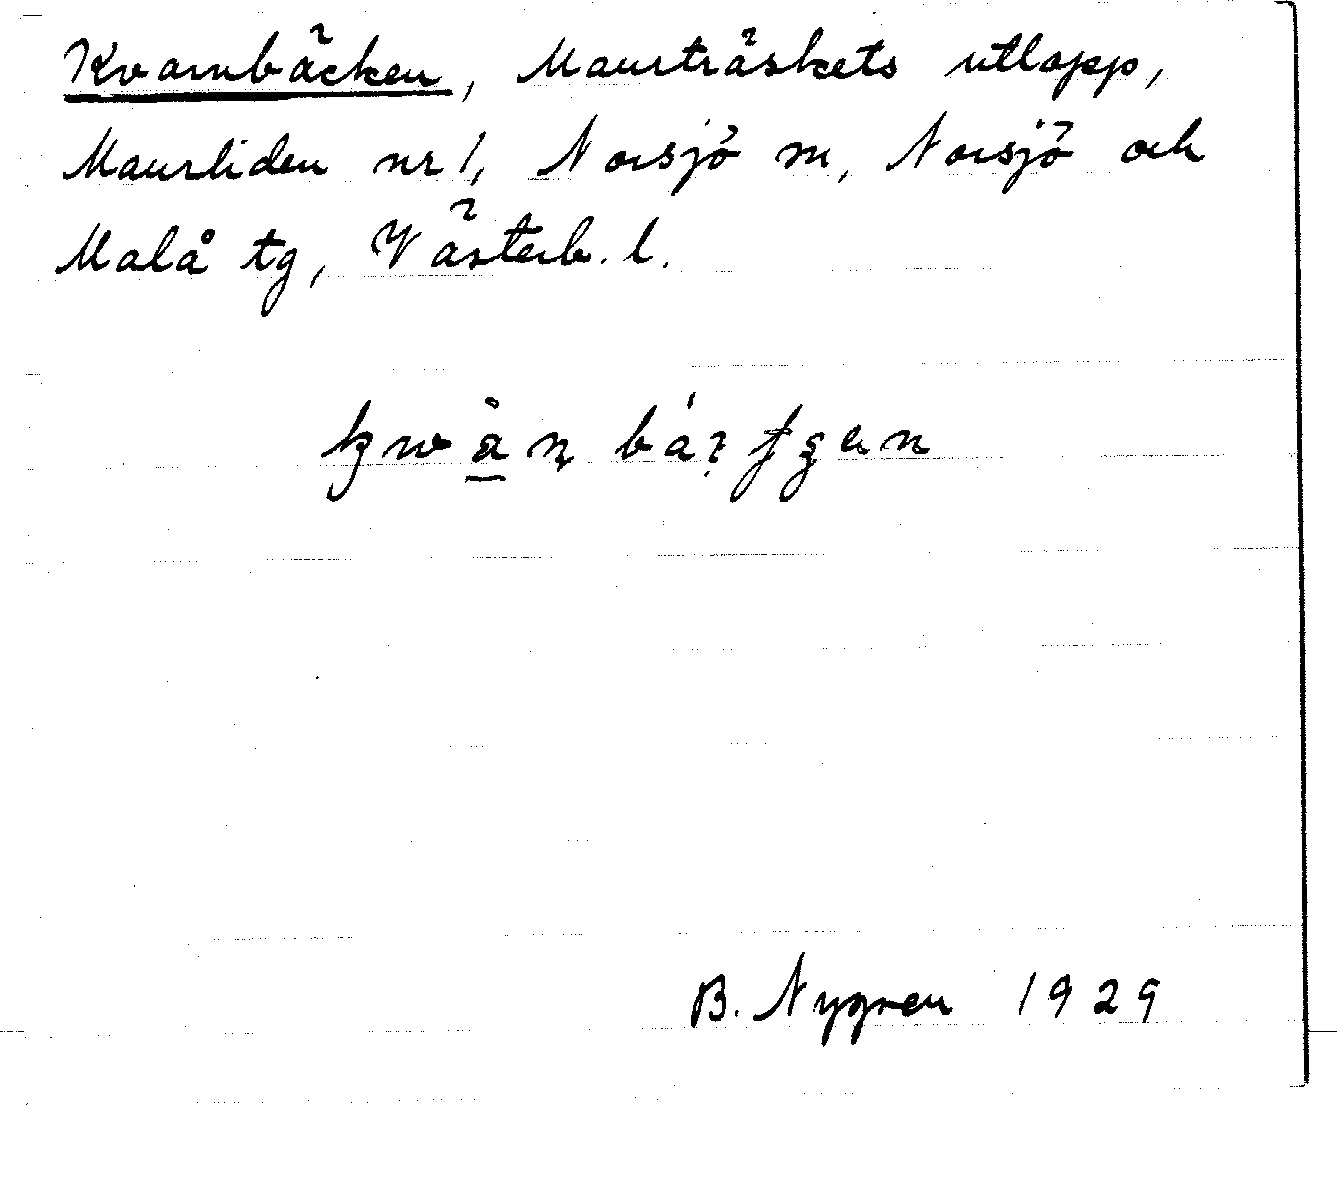 Kvarnbäcken, Maurträskets utlopp,
Maurliden nr 1, Norsjö sn, Norsjö och
Malå tg, Västerb. l.
B. Nygren 1929